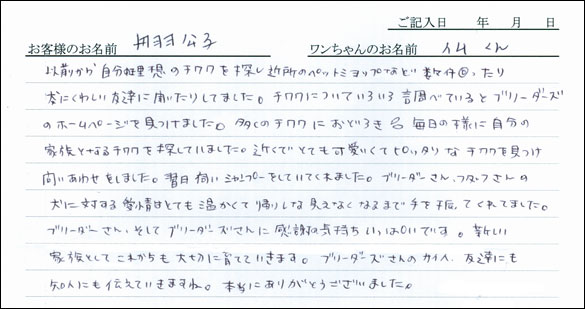 ご記入日　　年　　月　　日
お客様のお名前　丹羽公子　ワンちゃんのお名前　仙くん
以前から自分理想のチワワを探し近所のペットショップなど数々件回ったり
犬にくわしい友達に聞いたりしてました。チワワについていろいろ調べているとブリーダーズ
のホームページを見つけました。多くのチワワにおどろき 毎日の様に自分の
家族となるチワワを探していました。近くでとても可愛いくてピッタリなチワワを見つけ
問いあわせをしました。翌日伺いシャンプーをしていてくれました。ブリーダーさん、スタッフさんの
犬に対する愛情はとても温かくて帰りしな見えなくなるまで手を振ってくれてました。
ブリーダーさん、そしてブリーダーズさんに感謝の気持ちいっぱいです。新しい
家族としてこれからも大切に育てていきます。ブリーダーズさんのサイトへ、友達にも
知人にも伝えていきますね。本当にありがとうございました。